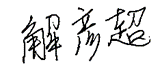 解彦超